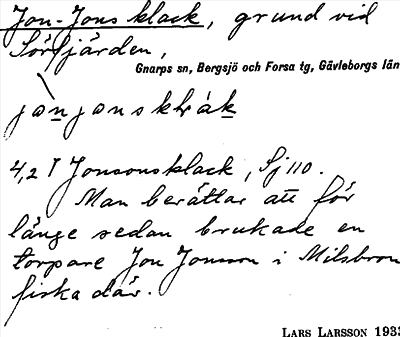 Jon-Jonsklack, grund vid
Sörfjärden,
Gnarps sn, Bergsjö och Forsa tg, Gävleborgs län
4,2 T Jonsonsklack, Sj 110.
Man berättar att för
länge sedan brukade en
torpare Jon Jonson i Milsbron
fiska där.
LARS LARSSON 1933